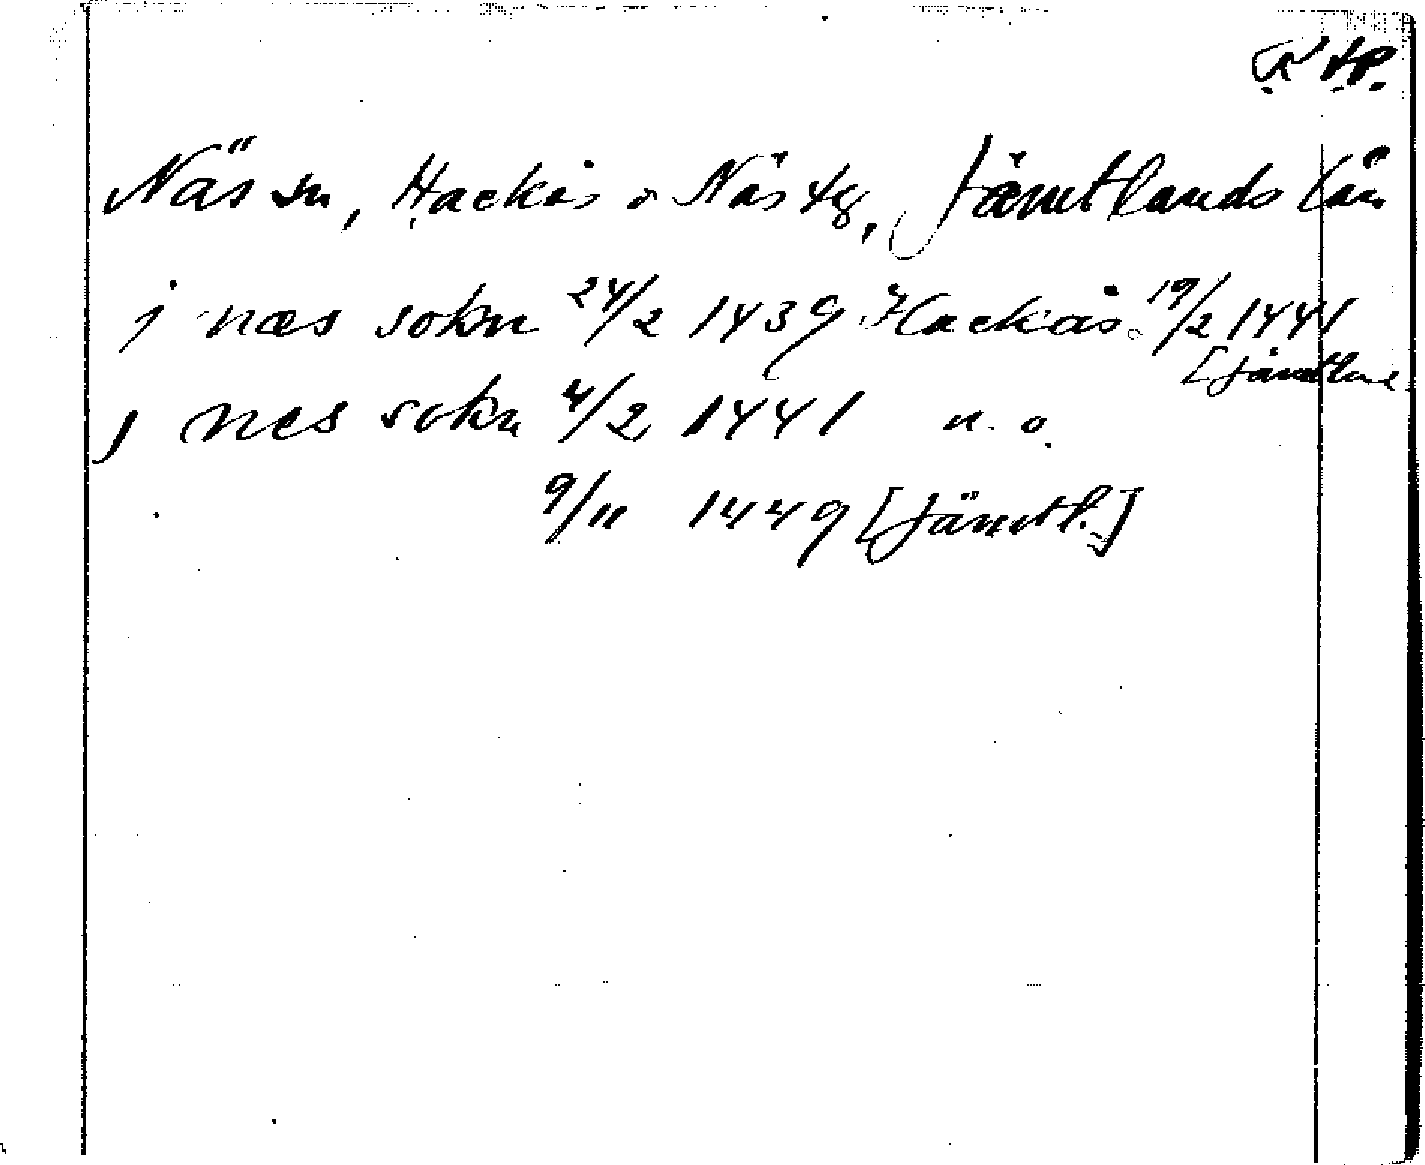 R A P.
Näs sn, Hackås o Näs tg, Jämtlands län
j næs sokn 24/2 1439 Hackås 19/2 1441
[Jämtland
j nes sokn 4/2 1441 n. o.
9/11 1449 [Jämtl.]